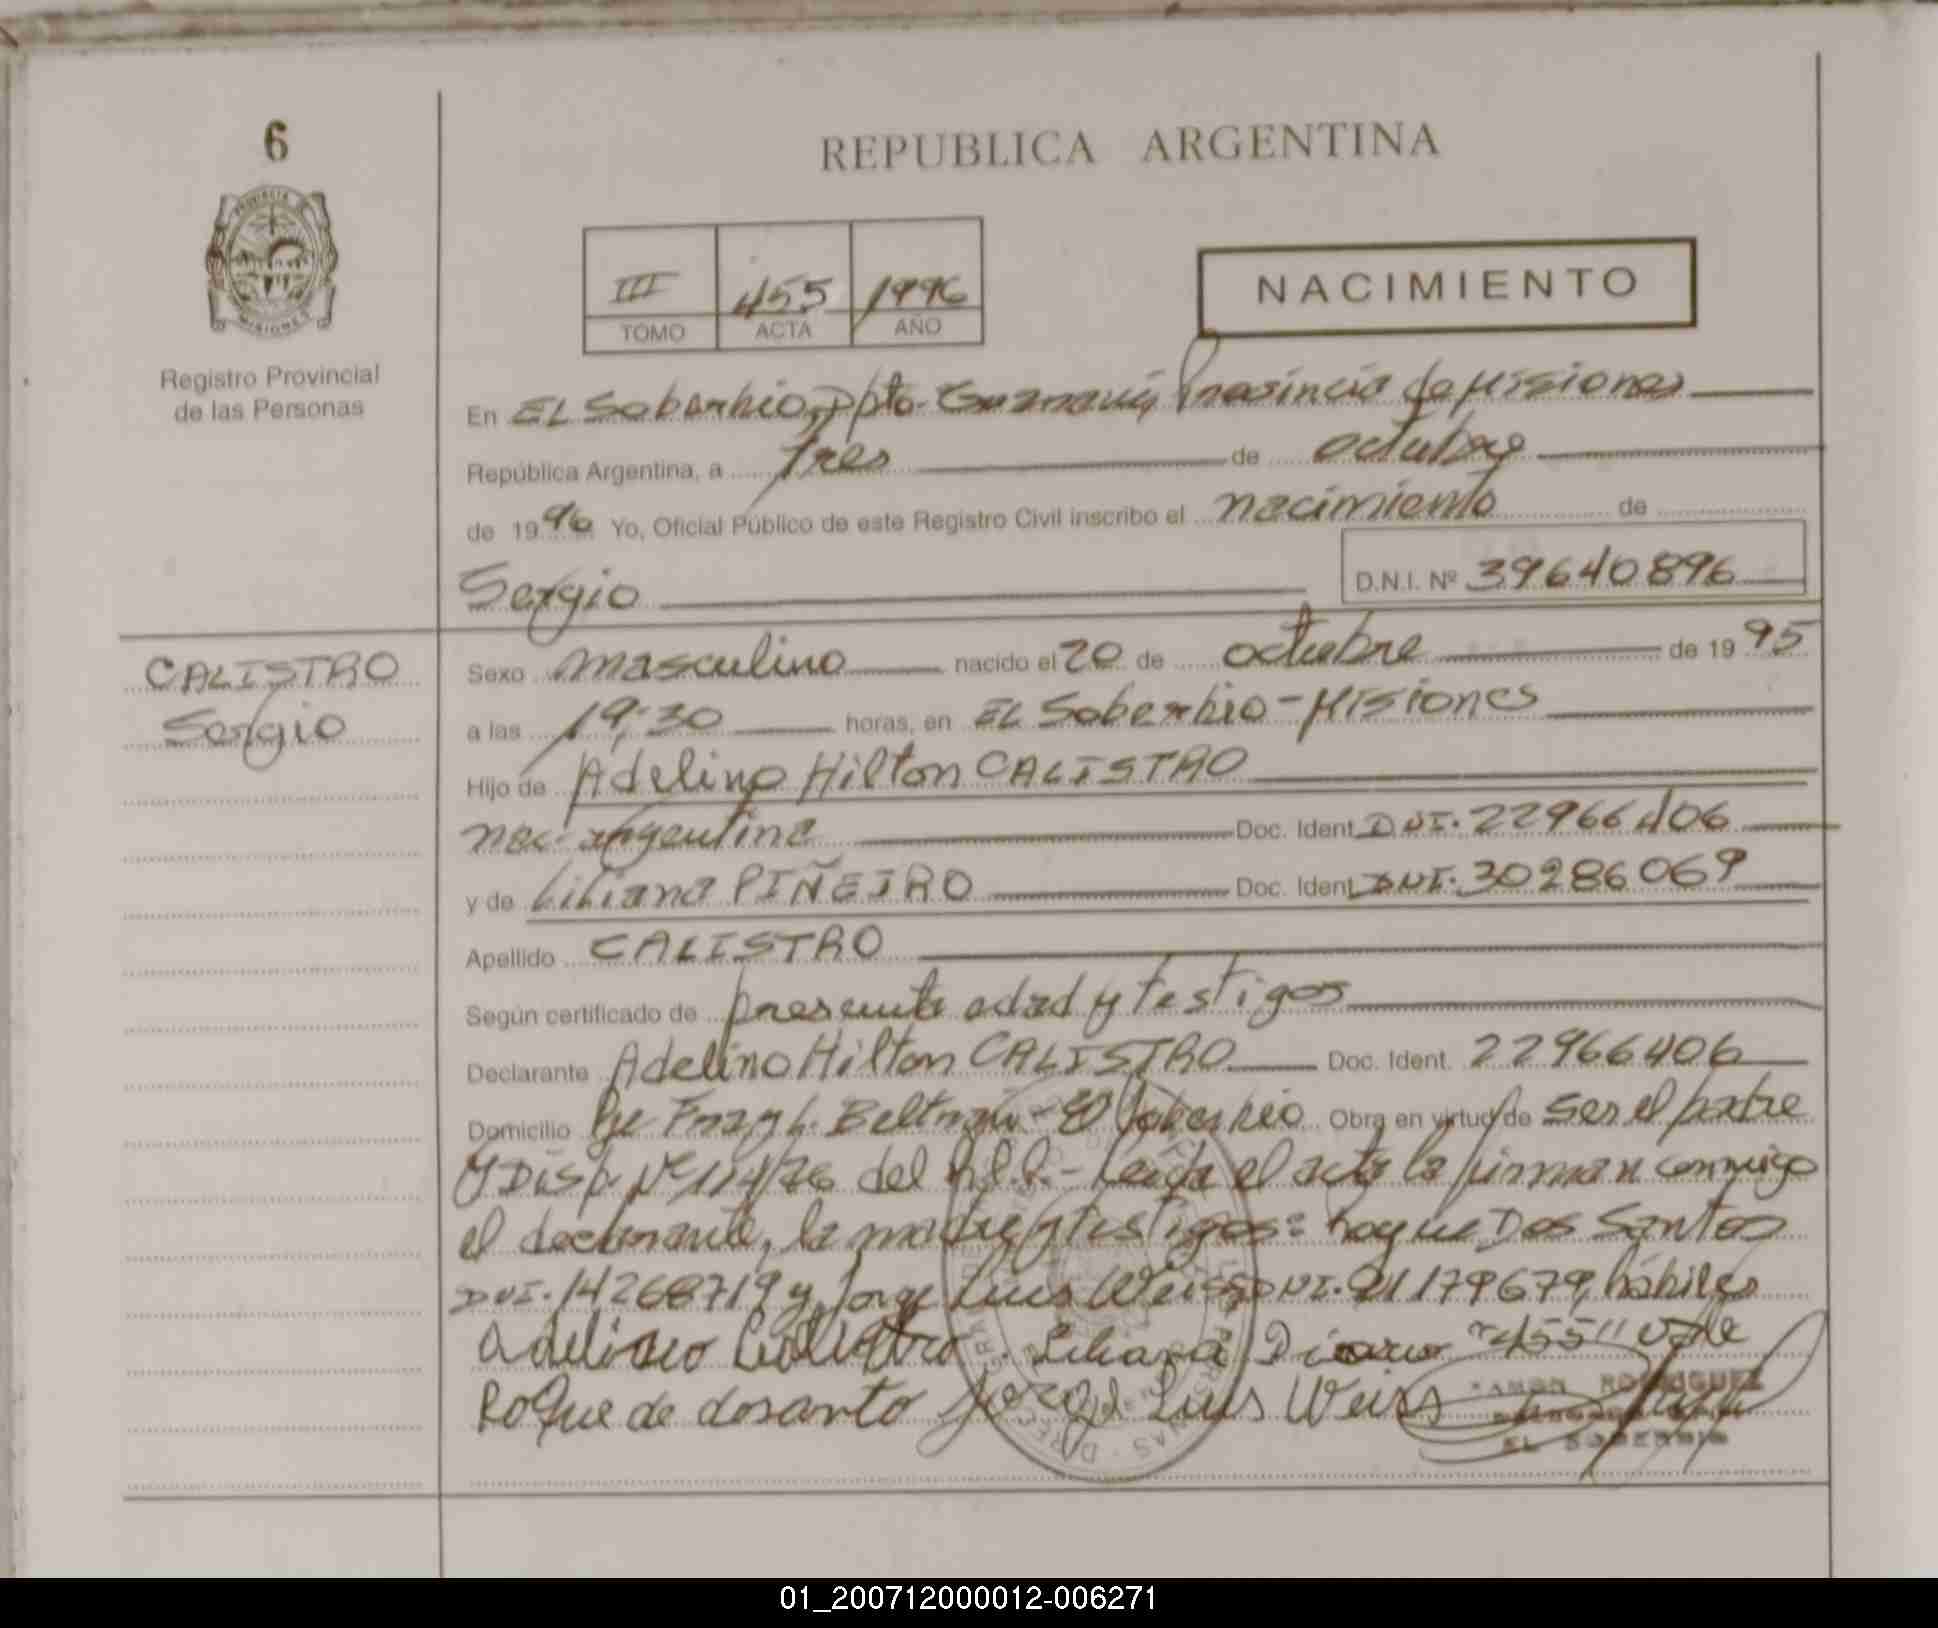 6
REPUBLICA ARGENTINA
PROVINCIA DE
MISIONES
Registro Provincial
de las Personas
III 455 1996
TOMO ACTA AÑO
NACIMIENTO
En EL Soberbio, Dpto. Guaraní, Provincia de Misiones
República Argentina, a tres de octubre
de 1996 Yo, Oficial Público de este Registro Civil inscribo el nacimiento de
Sergio D.N.I. Nº 39640896
CALISTRO
Sergio
Sexo masculino nacido el 20 de octubre de 1995
a las 19,30 horas, en EL Soberbio - Misiones
Hijo de Adelino Hilton CALISTRO
nac. argentina Doc. Ident. DNI. 22966406
y de Liliana PIÑEIRO Doc. Ident. DNI. 30286069
Apellido CALISTRO
Según certificado de presunta edad y testigos
Declarante Adelino Hilton CALISTRO Doc. Ident. 22966406
Domicilio Pje Fray L. Beltrán - El Soberbio Obra en virtud de ser el padre
y Disp. Nº 114/76 del R.P.P. - Leída el acta la firman conmigo
el declarante, la madre y testigos: Roque Dos Santos
DNI. 14268719 y Jorge Luis Weiss DNI. 21179679, hábiles
Liliana "455" vale
Roque de dosanto Jorge Luis Weiss
RAMON RODRIGUEZ
EL SOBERBIO
01_200712000012-006271